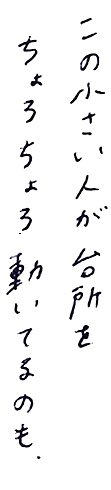 この小さい人が台所を
ちょろちょろ動いてるのも.